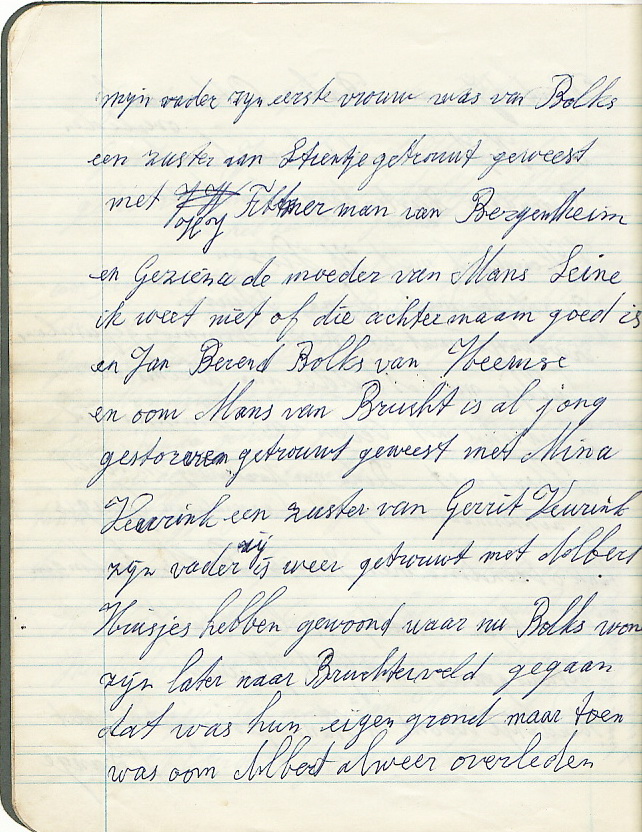 mijn vader zijn eerste vrouw was van Bolks
een zuster van Stientje getrouwt geweest
met Fitt man van Bergentheim
en Geziena de moeder van Mans Leine
ik weet niet of die achternaam goed is
en Jan Berend Bolks van Heemse
en oom Mans van Brucht is al jong
gestorven getrouwt geweest met Mina
Heurink een zuster van Gerrit Heurink
zijn vader zij is weer getrouwt met Albert
Huisjes hebben gewoond waar nu Bolks won
zijn later naar Bruchterveld gegaan
dat was hun eigen grond maar toen
was oom Albert alweer overleden